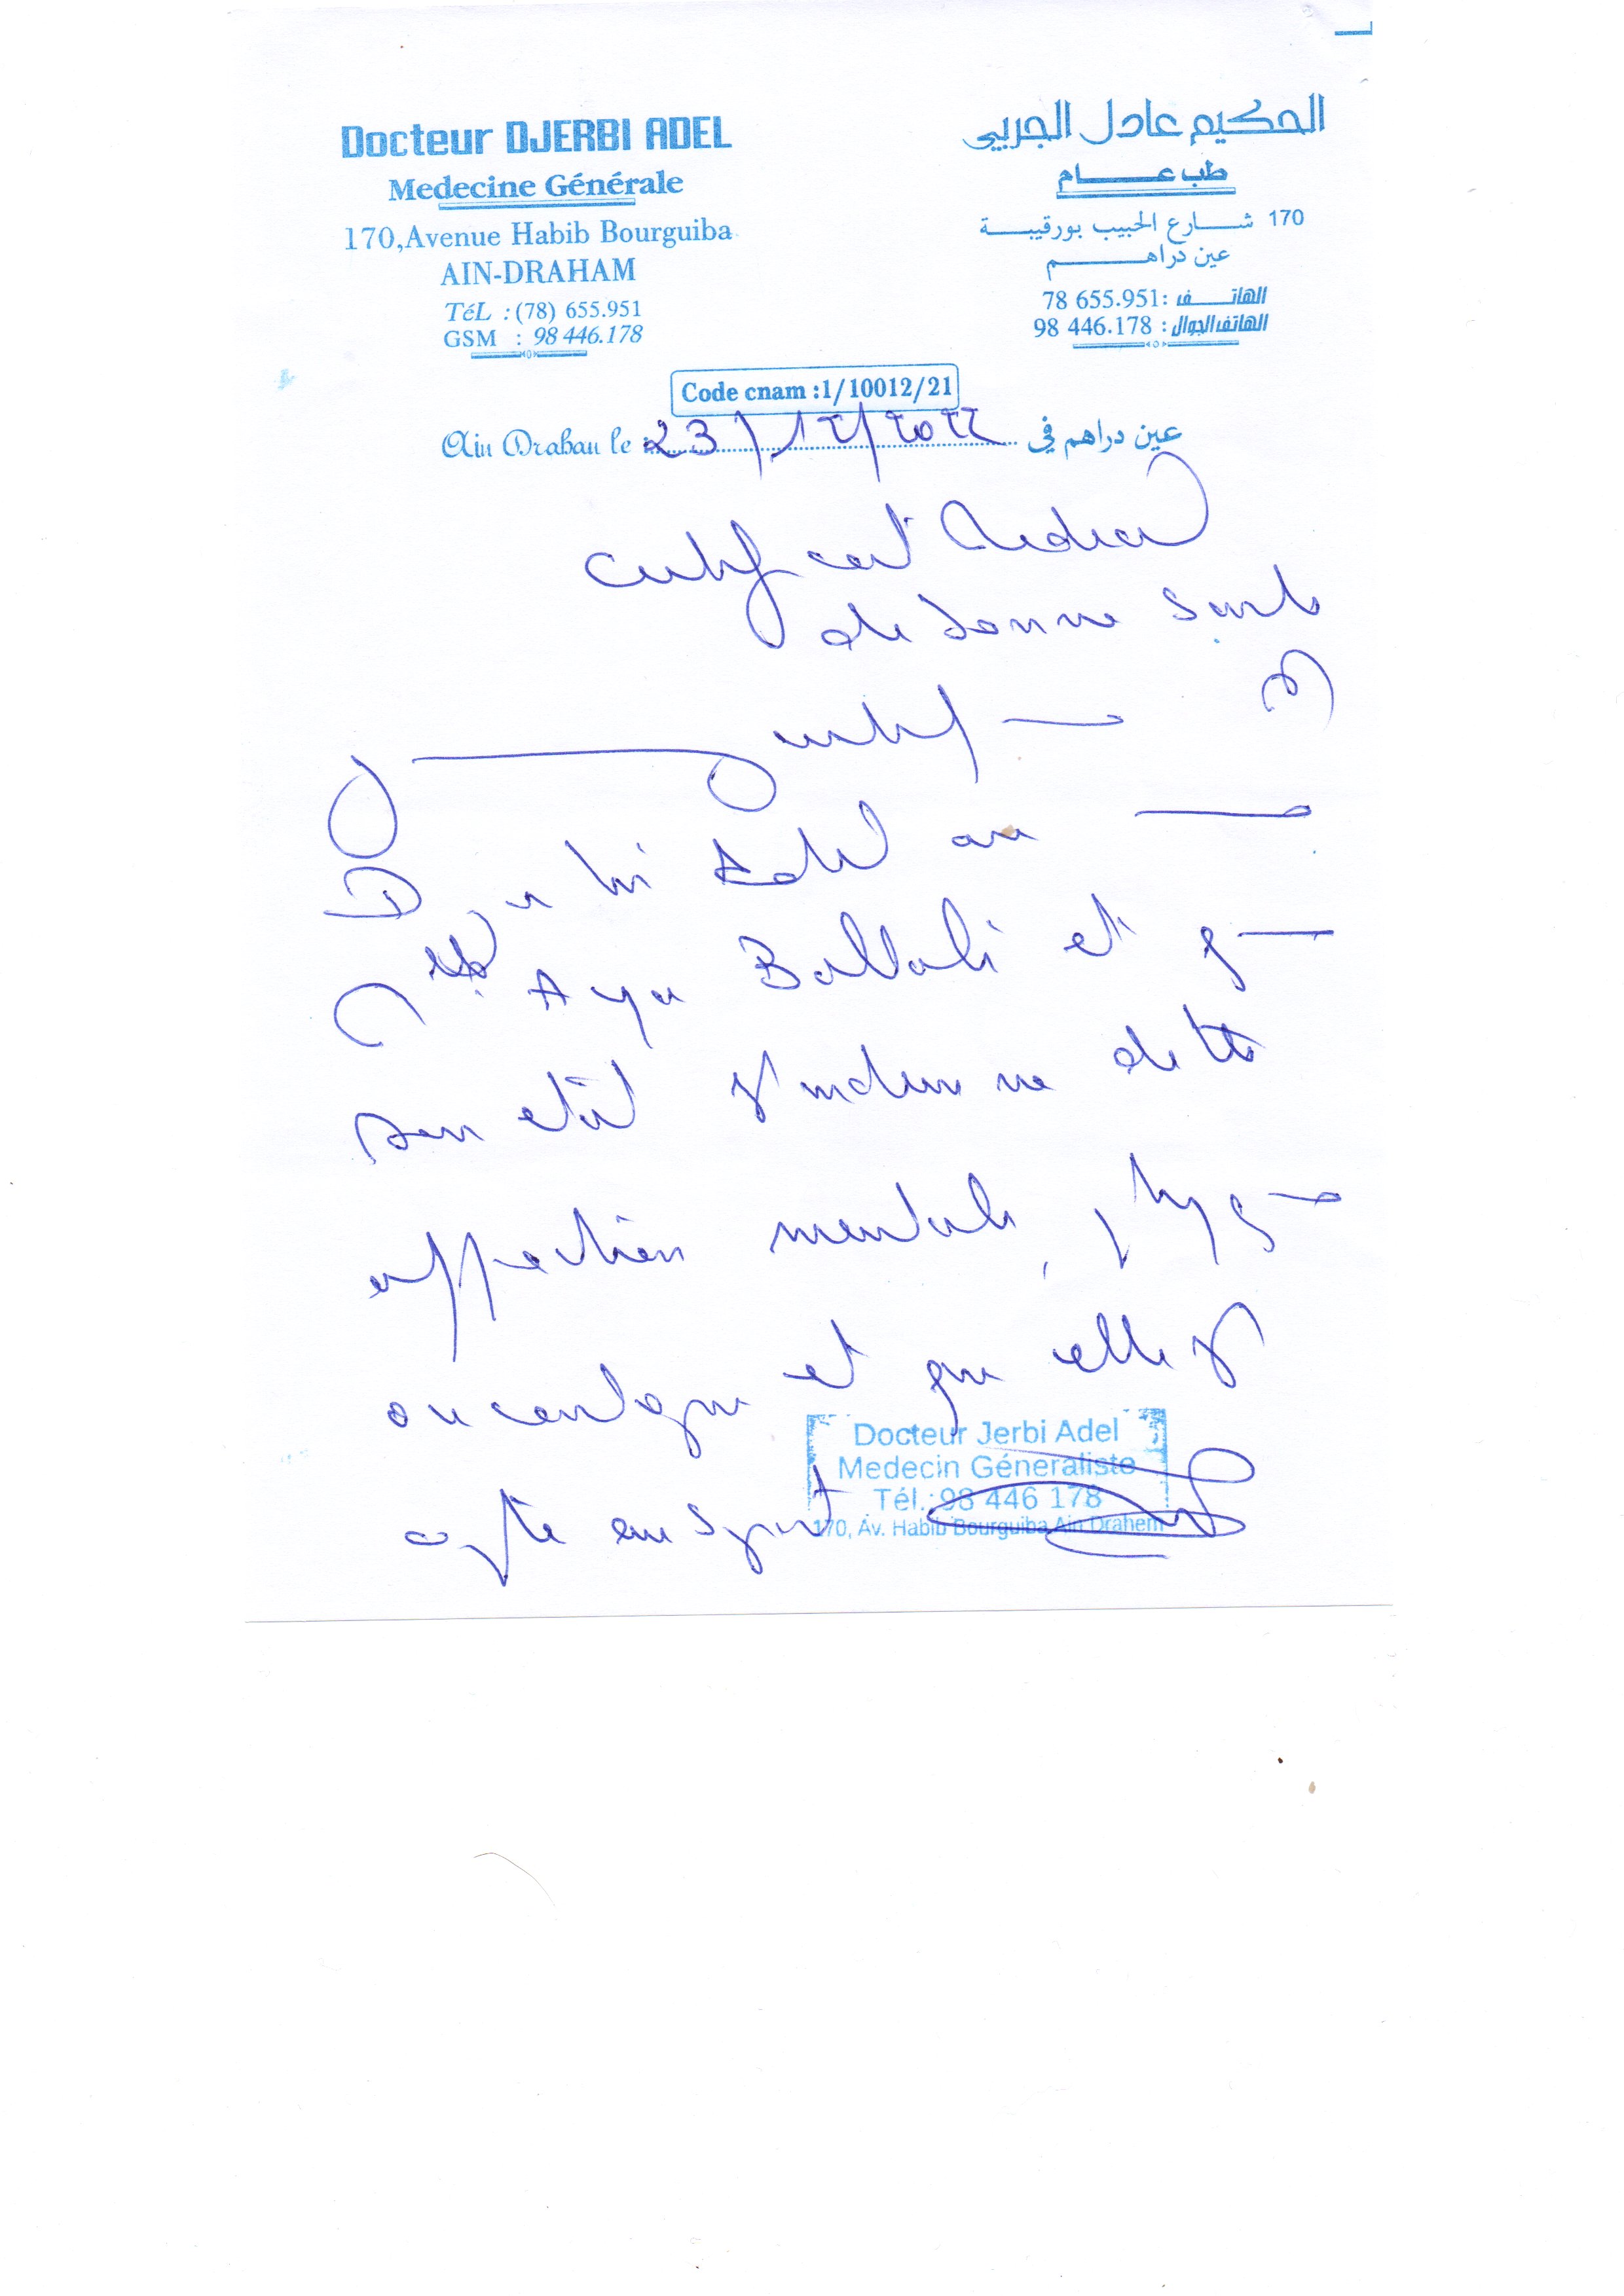 Docteur DJERBI ADEL
Medecine Générale
170,Avenue Habib Bourguiba
AIN-DRAHAM
TéL : (78) 655.951
GSM : 98 446.178
الحكيم عادل الجربي
طب عام
170 شارع الحبيب بورقيبة
عين دراهم
الهاتف : 78 655.951
الهاتف الجوال : 98 446.178
Code cnam :1/10012/21
Ain Drahan le : 23/12/2022 عين دراهم في
certificat Medical
de bonne sante
certif
Adel
Aya et
son etat indemne de tte
affection mentale, phys
ou contagieuse et que elle
apte au sport
Docteur Jerbi Adel
Medecin Géneraliste
Tél.: 98 446 178
170, Av. Habib Bourguiba Ain Drahem